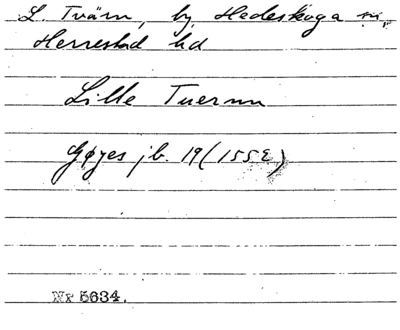 L. Tvärn, by, Hedeskoga sn,
Herrestad hd
Lille Tuernn
Gøyes jb. 19 (1552)
Nr 5634.